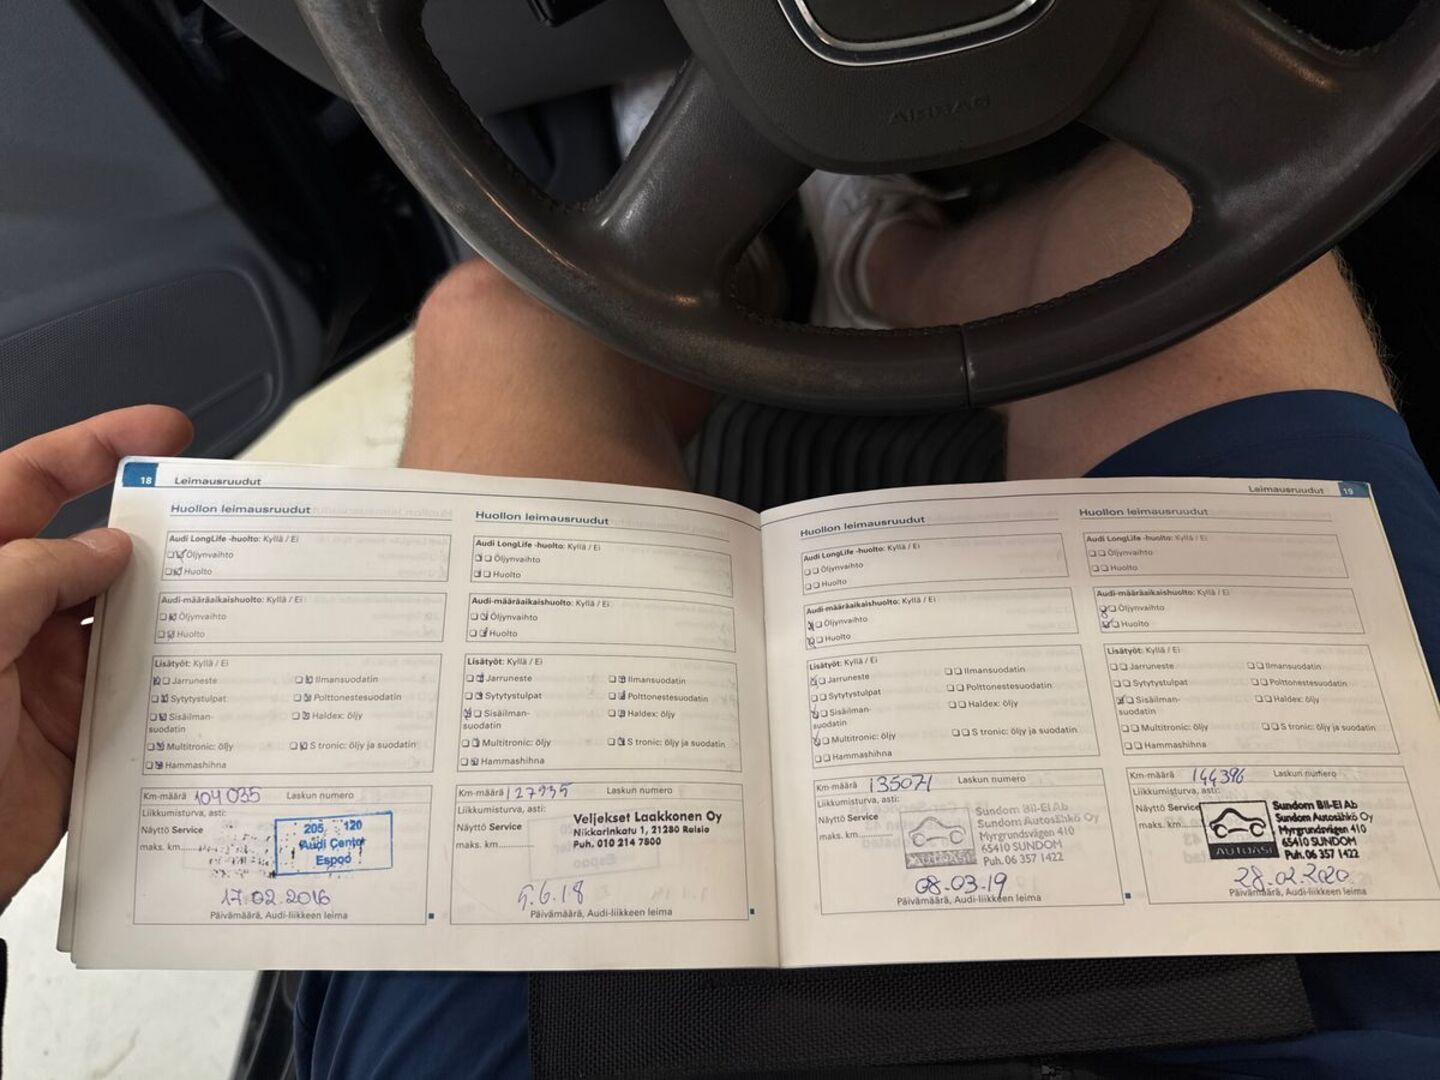 AIRBAG
18 Leimausruudut
Huollon leimausruudut
Audi LongLife -huolto: Kyllä / Ei
Öljynvaihto
Huolto
Audi-määräaikaishuolto: Kyllä / Ei
Öljynvaihto
Huolto
Lisätyöt: Kyllä / Ei
Jarruneste
Ilmansuodatin
Sytytystulpat
Polttonestesuodatin
Sisäilman-
suodatin
Haldex: öljy
Multitronic: öljy
S tronic: öljy ja suodatin
Hammashihna
Km-määrä 104035 Laskun numero
Liikkumisturva, asti:
Näyttö Service
maks. km
205 120
Audi Center
Espoo
17.02.2016
Päivämäärä, Audi-liikkeen leima
Huollon leimausruudut
Audi LongLife -huolto: Kyllä / Ei
Öljynvaihto
Huolto
Audi-määräaikaishuolto: Kyllä / Ei
Öljynvaihto
Huolto
Lisätyöt: Kyllä / Ei
Jarruneste
Ilmansuodatin
Sytytystulpat
Polttonestesuodatin
Sisäilman-
suodatin
Haldex: öljy
Multitronic: öljy
S tronic: öljy ja suodatin
Hammashihna
Km-määrä Laskun numero
Liikkumisturva, asti:
Näyttö Service
maks. km
Veljekset Laakkonen Oy
Nikkarinkatu 1, 21280 Raisio
Puh. 010 214 7500
5.6.18
Päivämäärä, Audi-liikkeen leima
Leimausruudut 19
Huollon leimausruudut
Audi LongLife -huolto: Kyllä / Ei
Öljynvaihto
Huolto
Audi-määräaikaishuolto: Kyllä / Ei
Öljynvaihto
Huolto
Lisätyöt: Kyllä / Ei
Jarruneste
Ilmansuodatin
Sytytystulpat
Polttonestesuodatin
Sisäilman-
suodatin
Haldex: öljy
Multitronic: öljy
S tronic: öljy ja suodatin
Hammashihna
Km-määrä 135071 Laskun numero
Liikkumisturva, asti:
Näyttö Service
maks. km
AUTOASI
Sundom Bil-El Ab
Sundom Autosähkö Oy
Myrgrundsvägen 410
65410 SUNDOM
Puh. 06 357 1422
08.03.19
Päivämäärä, Audi-liikkeen leima
Huollon leimausruudut
Audi LongLife -huolto: Kyllä / Ei
Öljynvaihto
Huolto
Audi-määräaikaishuolto: Kyllä / Ei
Öljynvaihto
Huolto
Lisätyöt: Kyllä / Ei
Jarruneste
Ilmansuodatin
Sytytystulpat
Polttonestesuodatin
Sisäilman-
suodatin
Haldex: öljy
Multitronic: öljy
S tronic: öljy ja suodatin
Hammashihna
Km-määrä 144396 Laskun numero
Liikkumisturva, asti:
Näyttö Service
maks. km
AUTOASI
Sundom Bil-El Ab
Sundom Autosähkö Oy
Myrgrundsvägen 410
65410 SUNDOM
Puh. 06 357 1422
28.02.2020
Päivämäärä, Audi-liikkeen leima